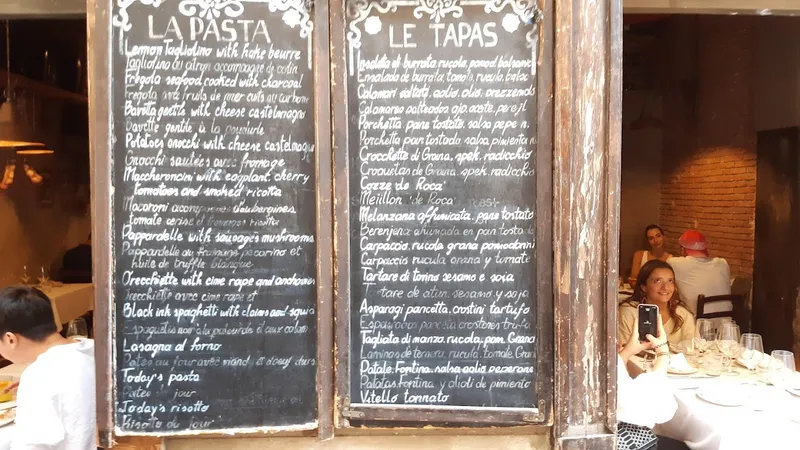 LA PASTA
Lemon Tagliolino with hake beurre
Tagliolino au citron accompagné de colin
Fregola seafood cooked with charcoal
Fregola avec fruits de mer cuits au carbone
Bavetta gentile with cheese castelmagno
Bavette gentile à la
Potatoes gnocchi with cheese castelmagno
Gnocchi sautées avec fromage
Maccheroncini with eggplant, cherry
tomatoes and smoked ricotta
Macaroni accompagnés d'aubergines,
tomate cerise et fromages ricotta
Pappardelle with sausages mushrooms
Pappardelle au fromage pecorino et
huile de truffe blanque
Orecchiette with cime rape and anchovies
Orecchiette avec cime rape et
Black ink spaghetti with clams and squid
spaguettis noir à la palourde et aux calam
Lasagna al forno
Pates au four avec viand et d'oeuf durs
Today's pasta
Pates du jour
Today's risotto
Risotto du jour
LE TAPAS
Insalata di burrata rucola, pomod. balsamo
Ensalada de burrata, tomate, rucula, balsa
Calamari saltati, aglio, olio, prezzemolo
Calamares salteados ajo, aceite, perejil
Porchetta pane tostato, salsa pepe n.
Porchetta pan tostado, salsa, pimienta n
Crocchette di Grana, spek, radicchio
Croquetas de Grana, spek, radicchio
Cozze de Roca
Mejillon de Roca
Melanzana affumicata, pane tostato
Berenjena ahumada en pan tostado
Carpaccio, rucola grana pomodorini
Carpaccis rucula grana y tomate
Tartare di tonno sesamo e soia
Tartare de atun, sesamo y soja
Asparagi pancetta, crostini tartufo
pancetta crostones trufa
Tagliata di manzo, rucola, pom. Grana
Laminas de ternera, rucula, tomate, Grana
Patate, Fontina, salsa aglio peperone
Patatas, Fontina, y alioli de pimiento
Vitello tonnato